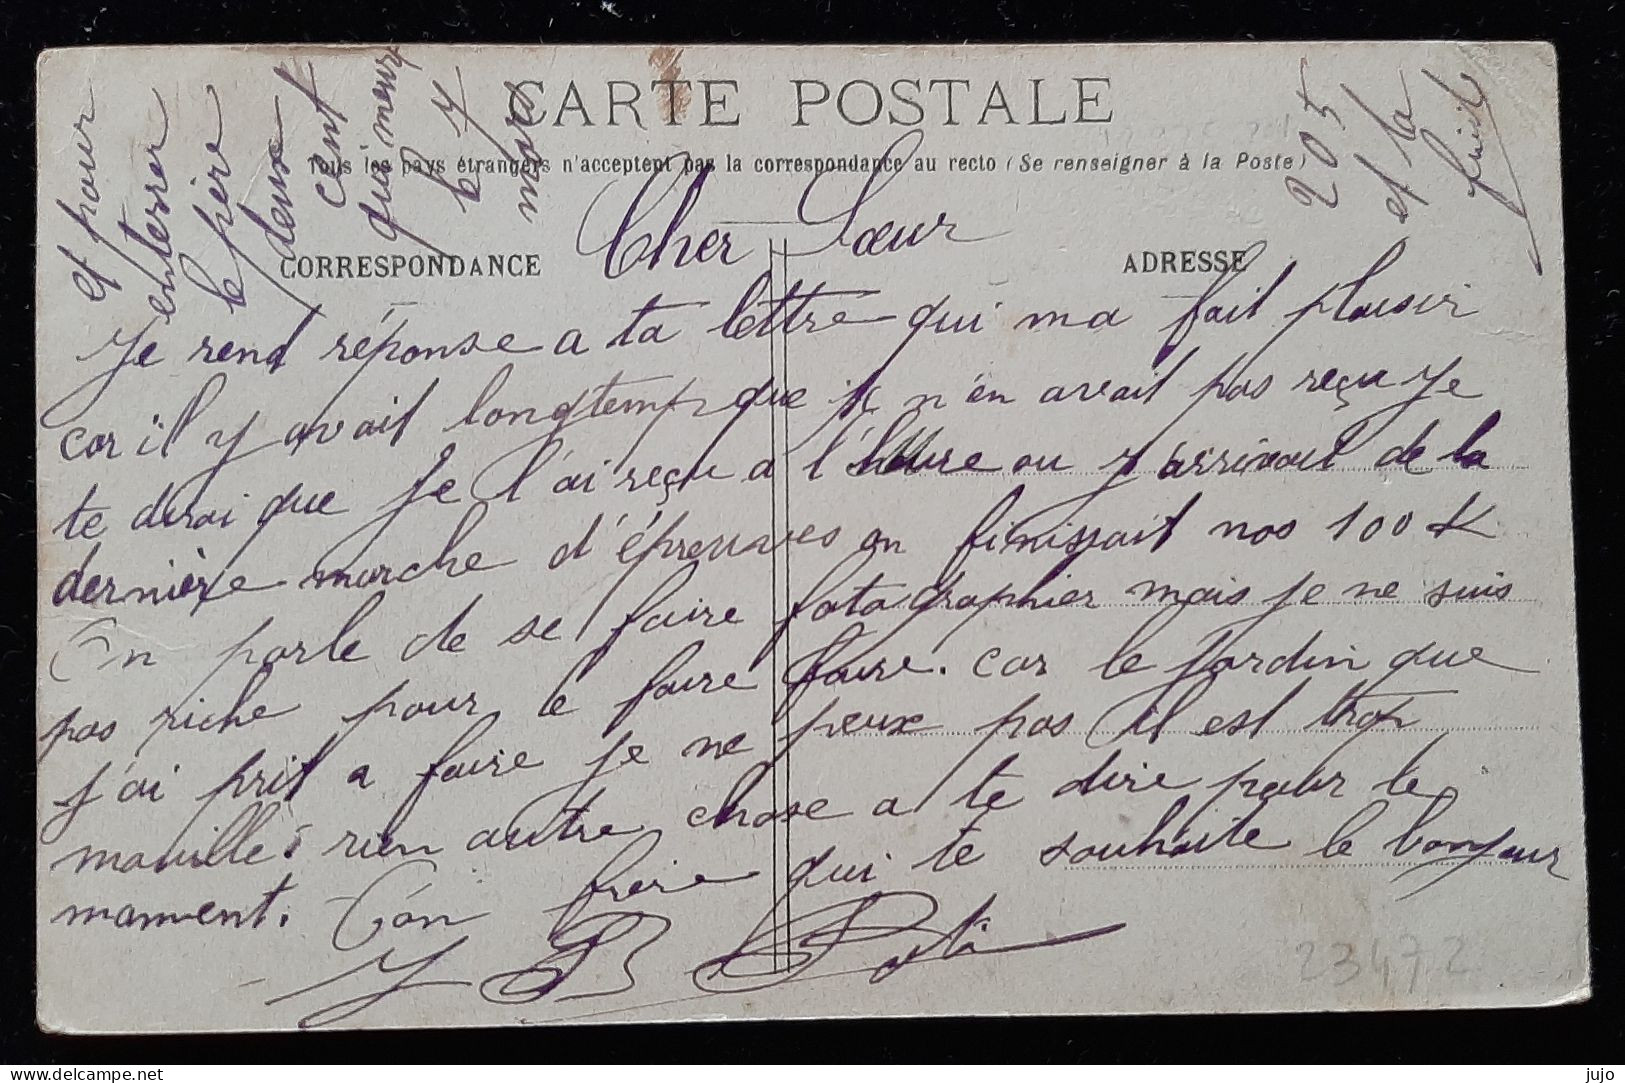 CARTE POSTALE
Tous les pays étrangers n'acceptent pas la correspondance au recto (Se renseigner à la Poste)
CORRESPONDANCE
ADRESSE
Cher Sœur
Je rend réponse a ta lettre qui ma fait plaisir
car il y avait longtemps que je n'en avait pas reçu Je
te dirai que Je l'ai reçu a l'heure ou J'arrivait de la
dernière marche d'épreuves on finissait nos 100 K
On parle de se faire fotographier mais je ne suis
pas riche pour le faire faire. car le Jardin que
j'ai prit a faire je ne peux pas il est trop
mouillé. rien autre chose a te dire pour le
moment. Ton frère qui te souhaite le bonjour
et pour
enterrer
le père
deux
cent
qui meurt
le 7
mars
205
et la
fuite
23472
www.delcampe.net
jujo